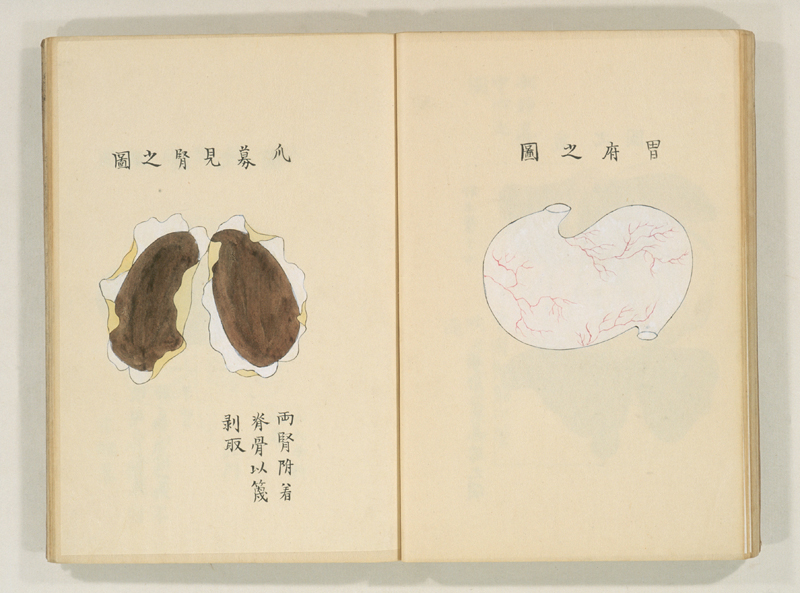 胃府之圖
爪募見腎之圖
両腎附着
脊骨以篾
剥取